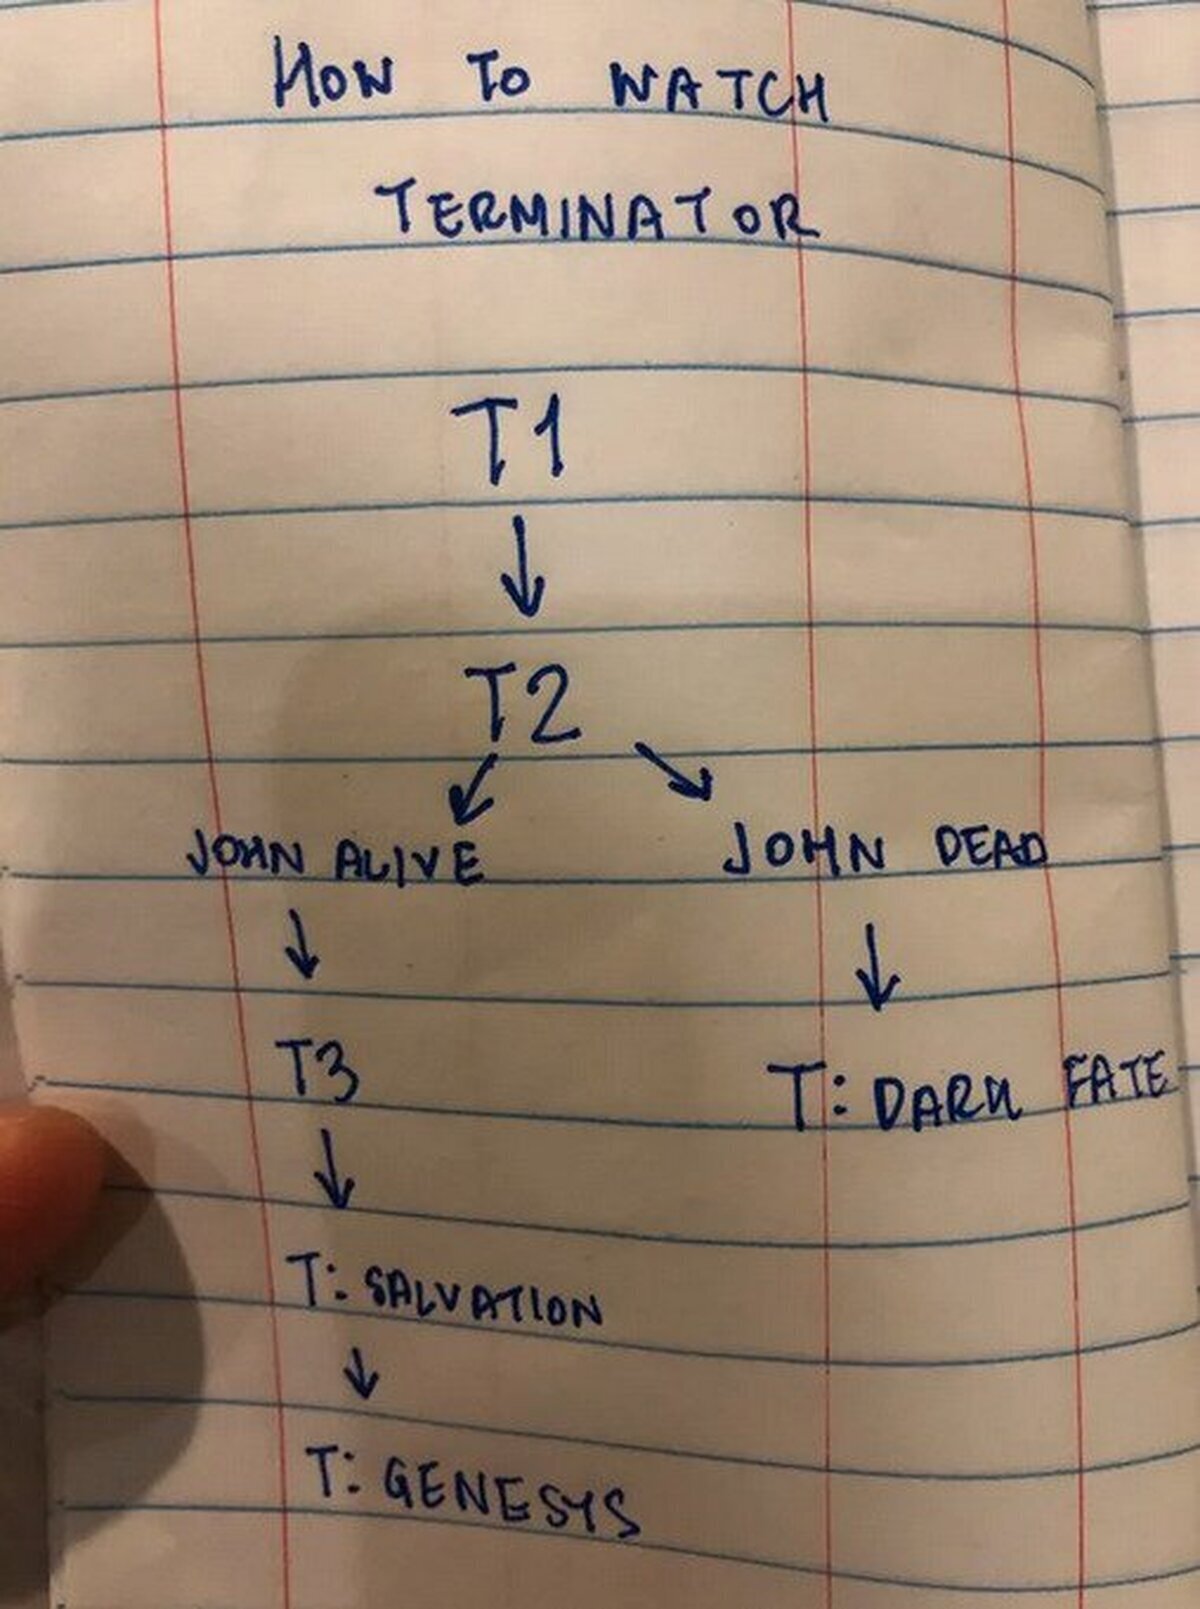 HOW TO WATCH
TERMINATOR
T1
T2
JOHN ALIVE
JOHN DEAD
T3
T: DARK FATE
T: SALVATION
T: GENESYS